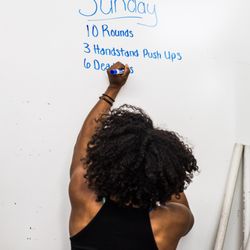 Sunday
10 Rounds
3 Handstand Push Ups
6